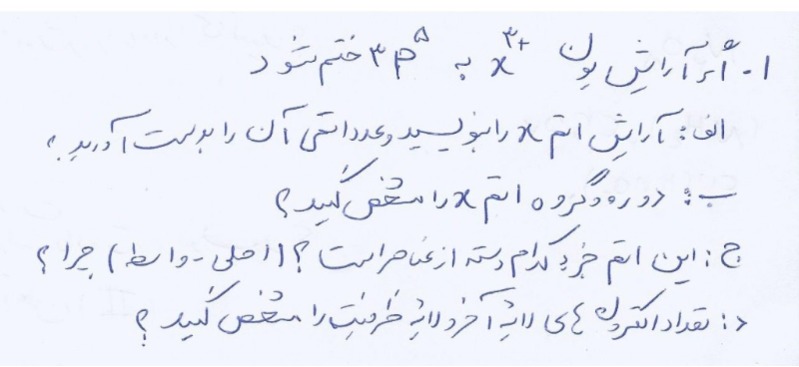 ۱- اگر آرایش یون x³⁺ به ۳p⁵ ختم شود
الف: آرایش اتم x را بنویسید و عدد اتمی آن را بدست آورید؟
ب: دوره و گروه اتم x را مشخص کنید؟
ج: این اتم جزء کدام دسته از عناصر است؟ (اصلی - واسطه) چرا؟
د: تعداد الکترون های لایه آخر و لایه ظرفیت را مشخص کنید؟